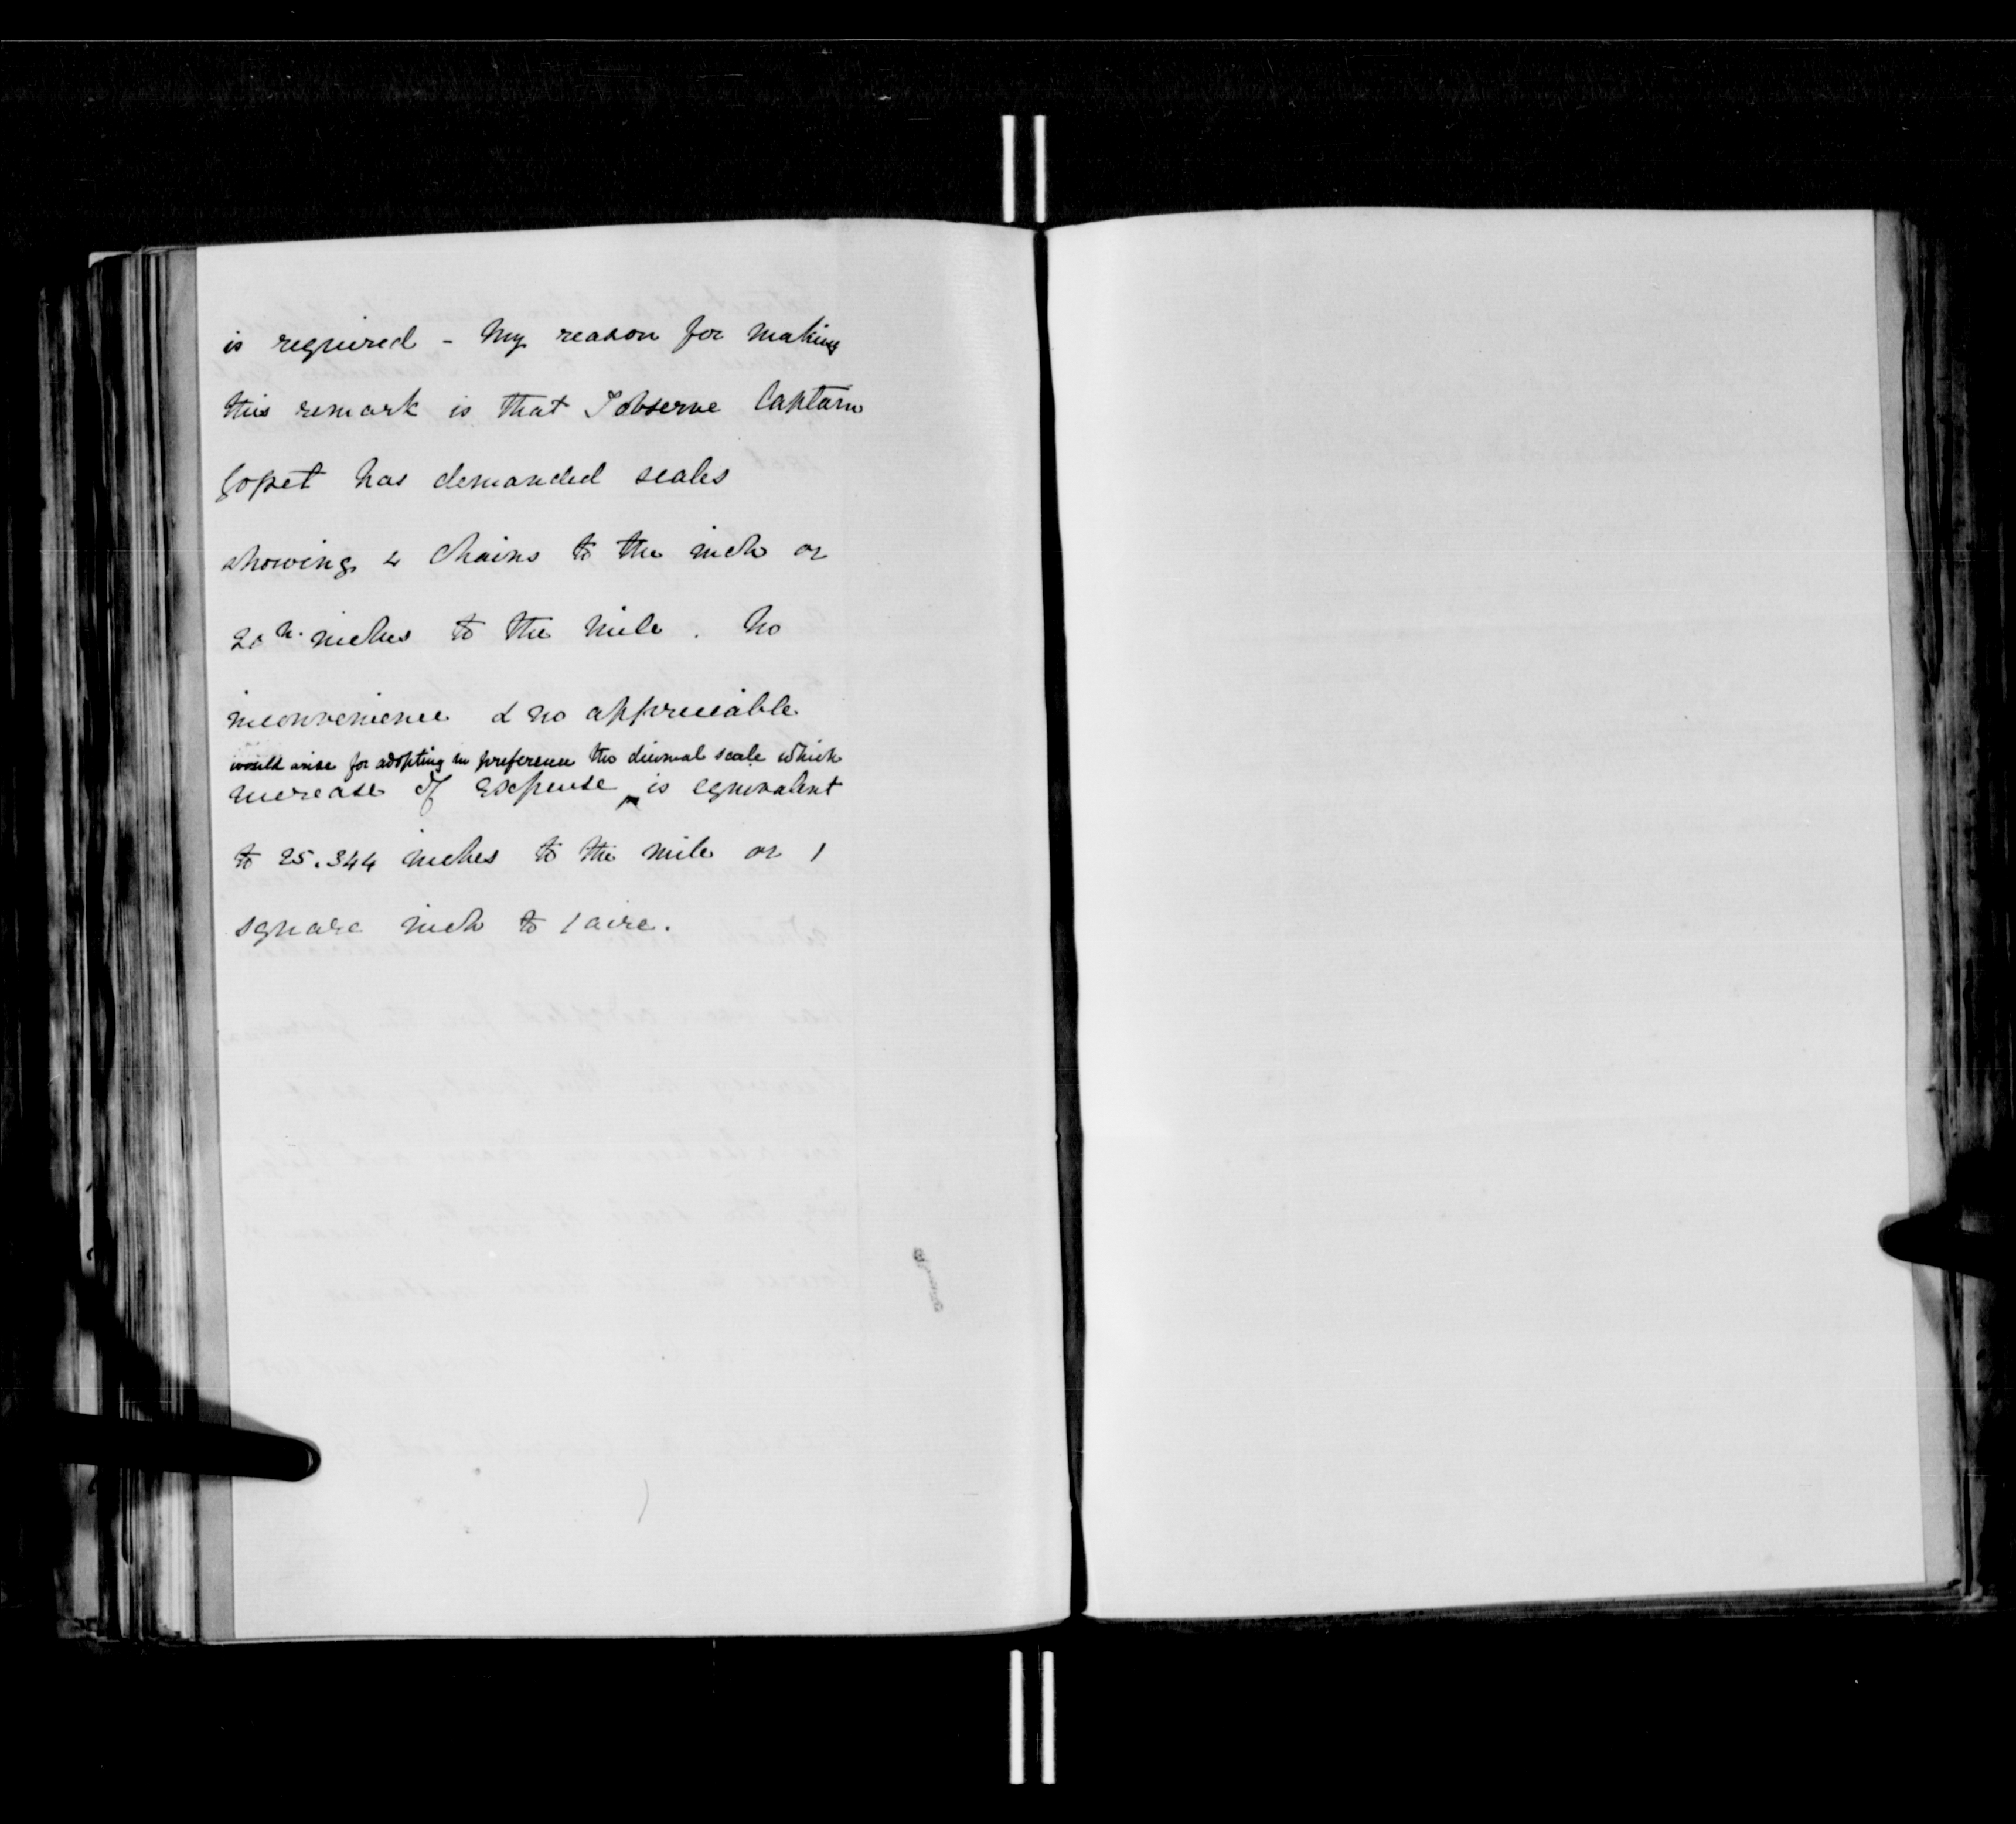 is required - My reason for making
this remark is that I observe Captain
Gosset has demanded scales
showing 4 Chains to the inch or
20 inches to the mile. No
inconvenience & no appreciable
would arise for adopting in preference the decimal scale which
increase of expense ‸ is equivalent
to 25.344 inches to the mile or 1
square inch to 1 acre.